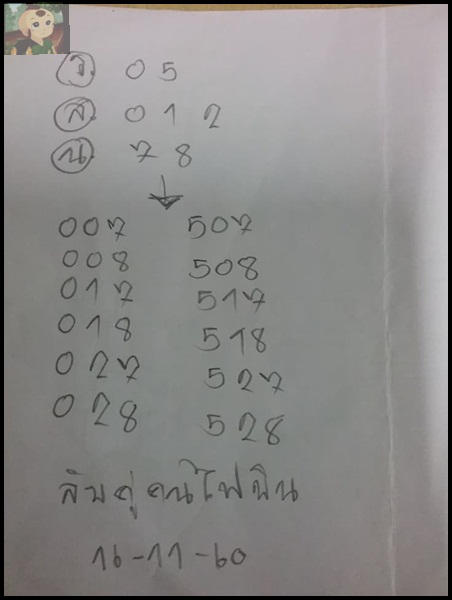 ร 0 5
ส 0 1 2
น 7 8
007 507
008 508
017 517
018 518
027 527
028 528
คู่
16-11-60